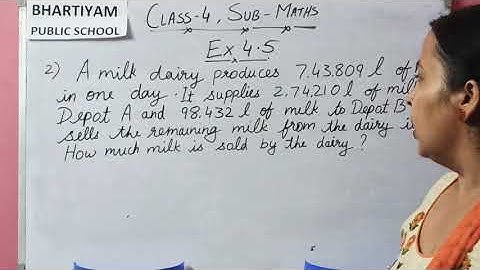 BHARTIYAM
PUBLIC SCHOOL
CLASS-4, SUB-MATHS
Ex 4.5
2) A milk dairy produces 7,43,809 l of
in one day. It supplies 2,74,210 l of mil
Depot A and 98,432 l of milk to Depot B
sells the remaining milk from the dairy
How much milk is sold by the dairy?